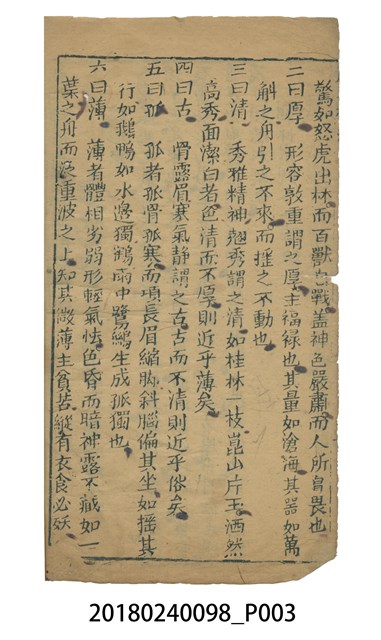 驚如怒虎出林而百獸自戰盖神色嚴肅而人所自畏也
二曰厚　形容敦重謂之厚主福禄也其量如滄海其器如萬
斛之舟引之不來而摇之不動也
三曰清　秀雅精神翹秀謂之清如桂林一枝崑山片玉洒然
高秀面潔白者色清而不厚則近乎薄矣
四曰古　骨露眉寒氣静謂之古古而不清則近乎俗矣
五曰孤　孤者孤骨孤寒而項長眉縮脚斜腦偏其坐如摇其
行如鵝鴨如水邊獨鶴雨中鷺鷥生成孤獨也
六曰薄　薄者體相劣弱形輕氣怯色昏而暗神露不藏如一
葉之舟而泛重波之上知其微薄主貧苦縱有衣食必妖
20180240098_P003